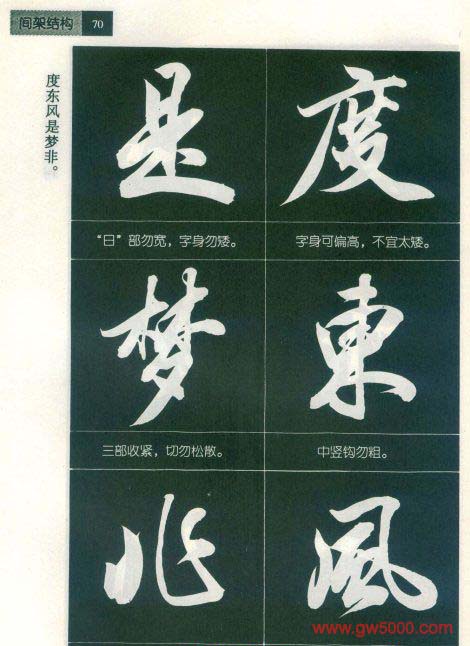 间架结构 70
度东风是梦非。
度
字身可偏高，不宜太矮。
東
中竖钩勿粗。
風
是
“日”部勿宽，字身勿矮。
梦
三部收紧，切勿松散。
非
www.gw5000.com